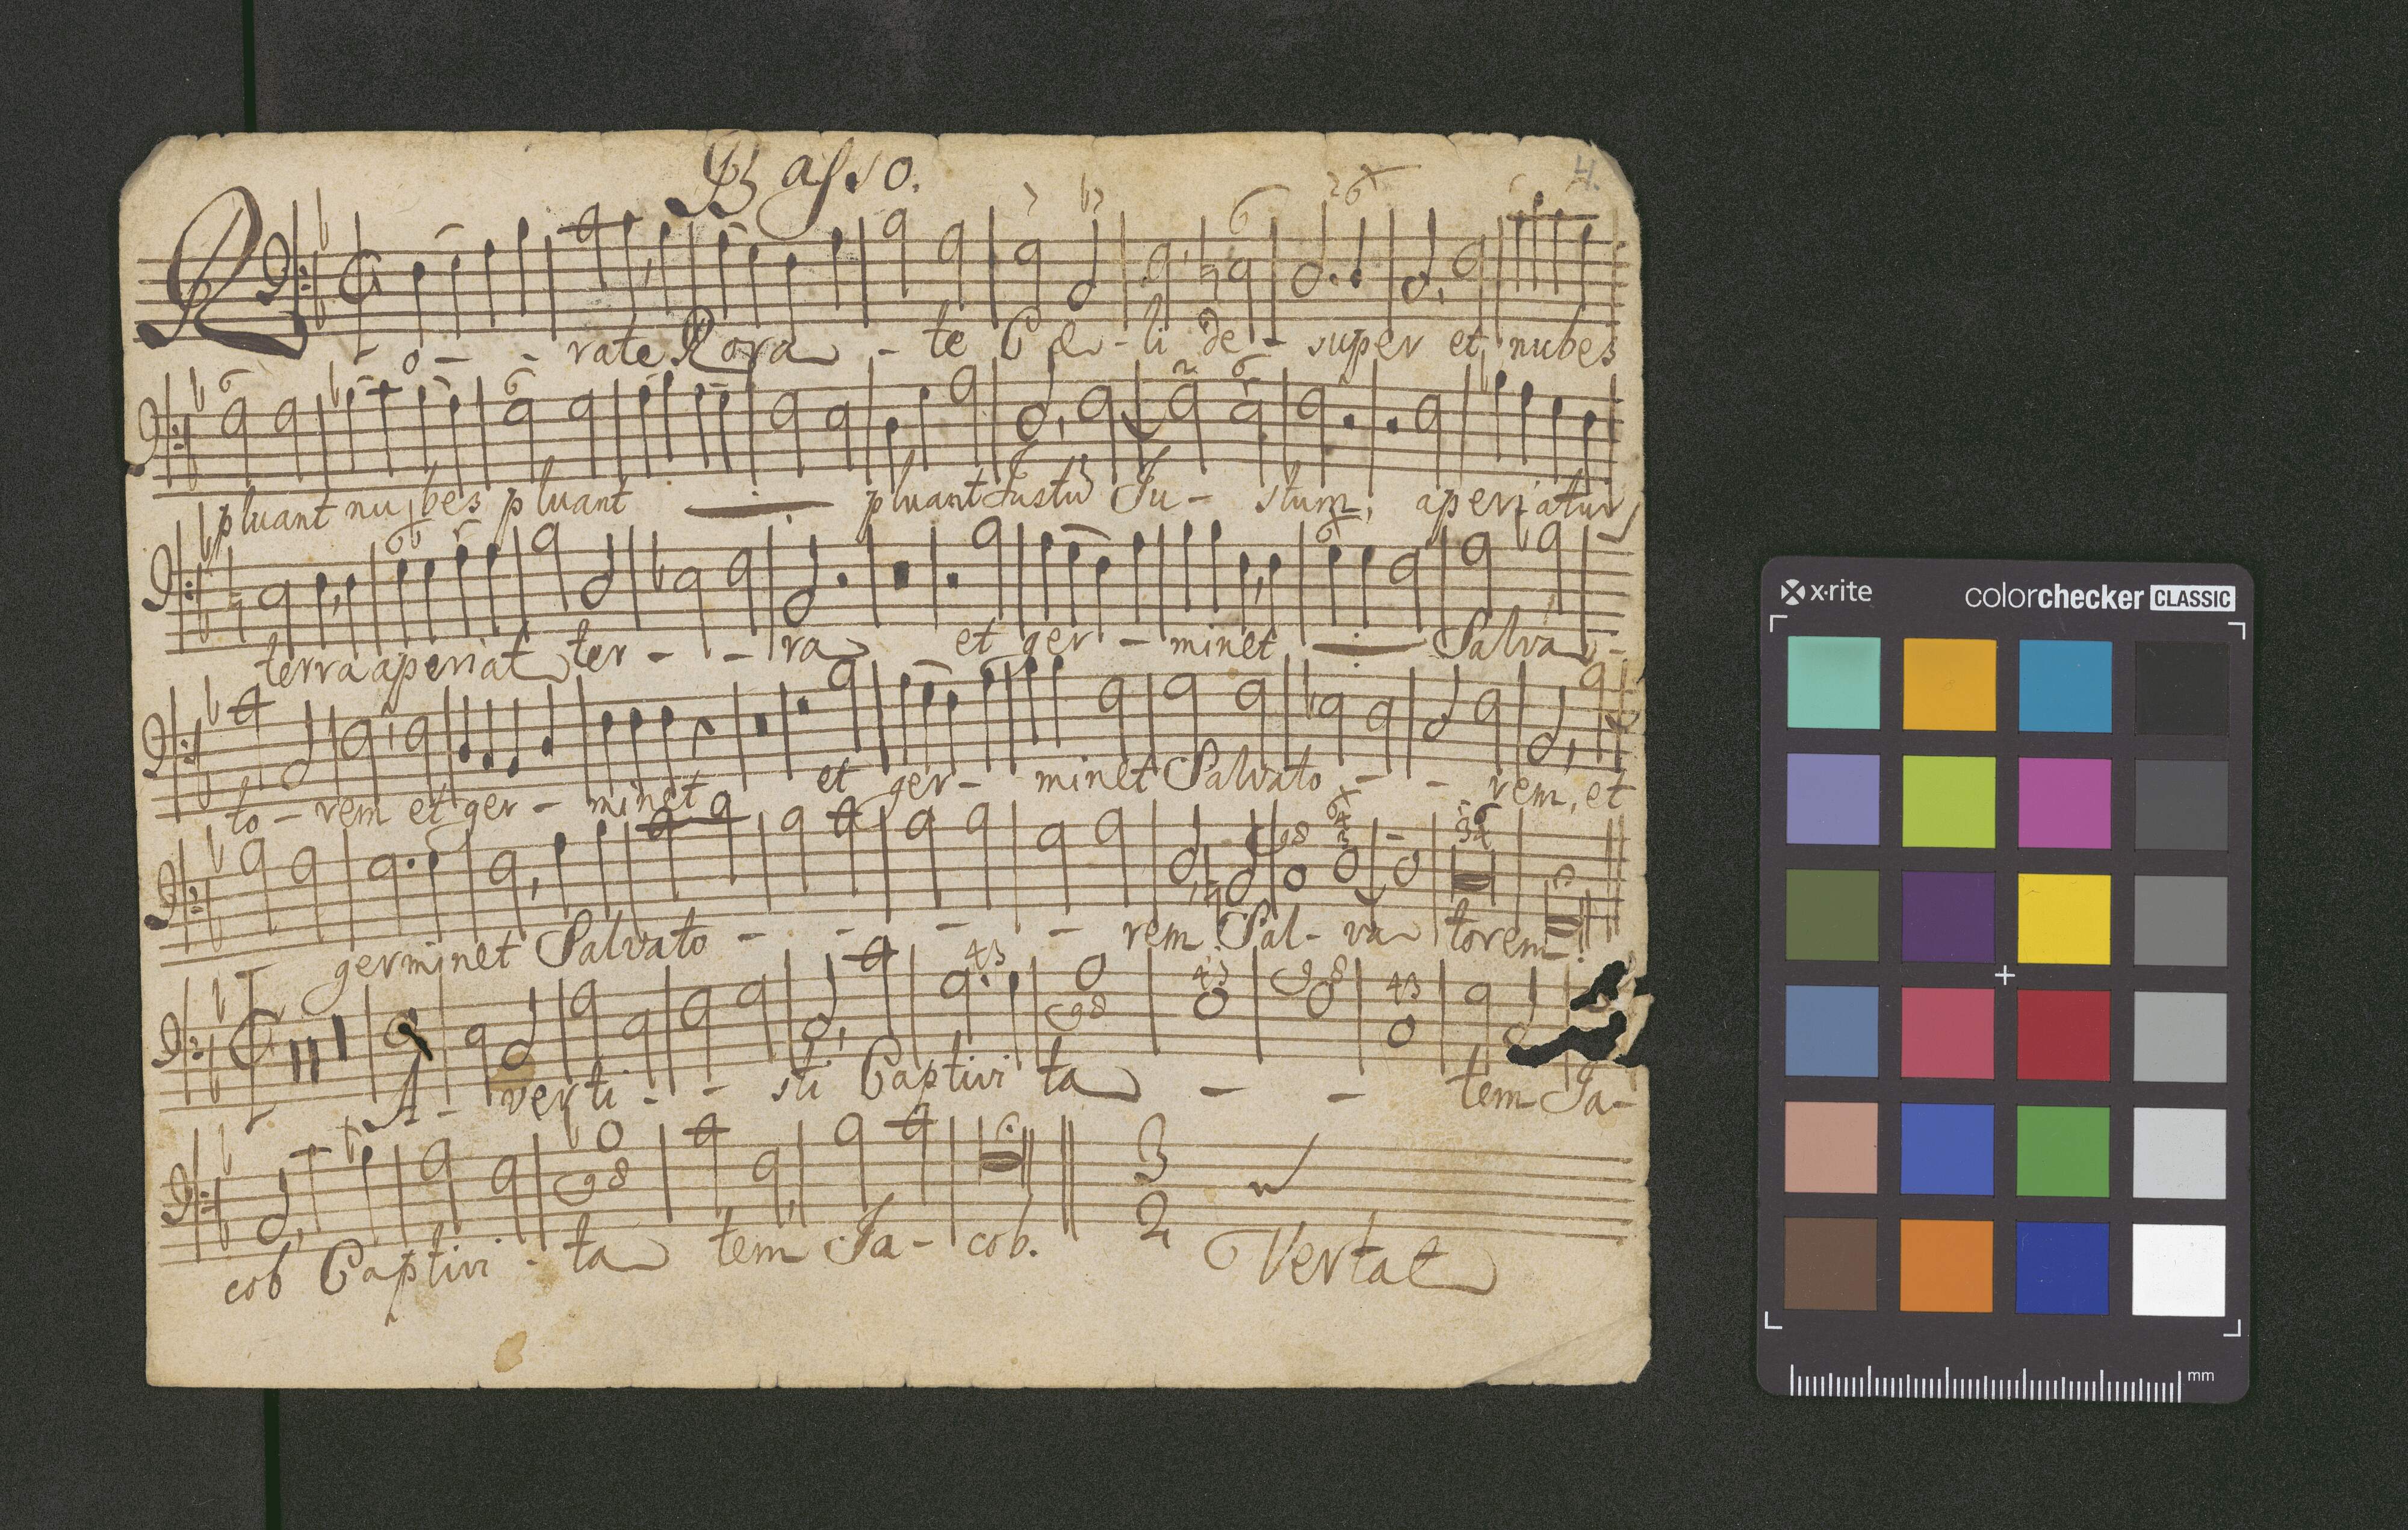 Basso.
4.
Ro - - rate Rora - te Cæ - li de - super et nubes
pluant nubes pluant pluant Justū Ju - stum, aperiatur
terra aperiat ter - - - ra et ger - minet Salva -
to - rem et ger - minet et ger - minet Salvato - - rem, et
germinet Salvato - - - - rem Sal - va torem.
A - verti - - sti Captivi ta - - tem Ja -
cob Captivi - ta tem Ja - cob.
Vertat
x·rite colorchecker CLASSIC
mm